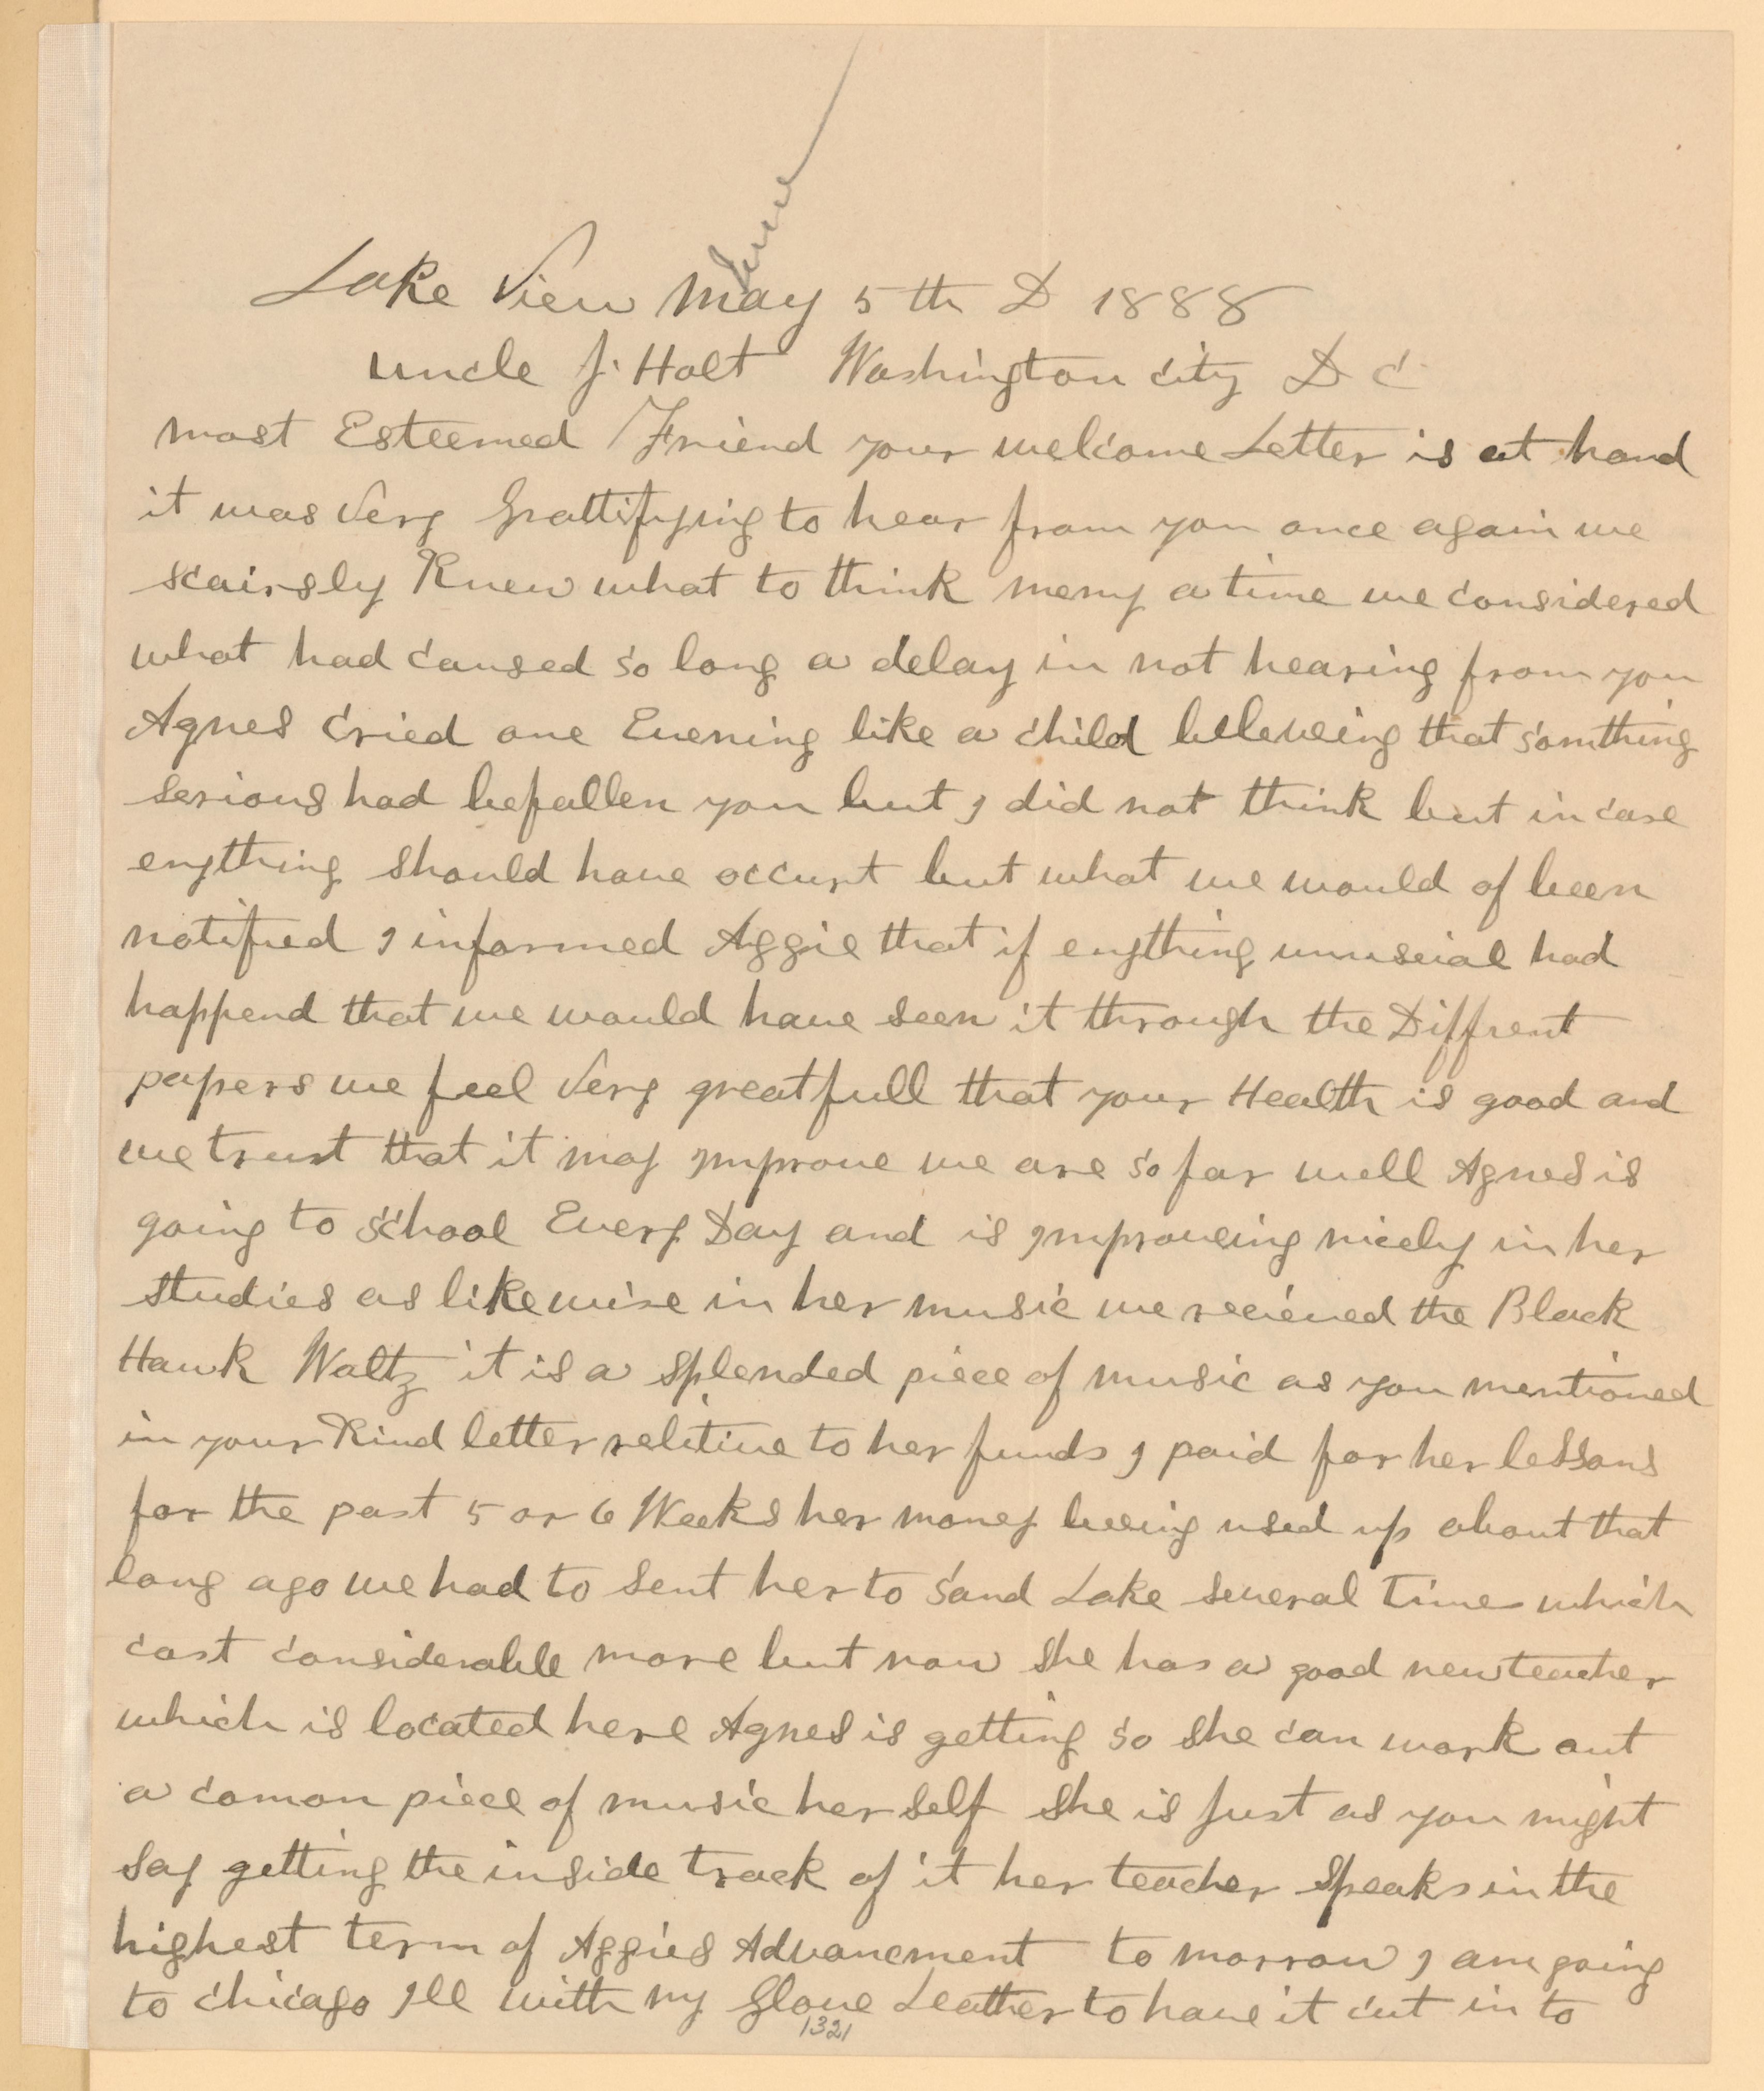 June
Lake View May 5th D 1888
uncle J. Holt Washington city D C
most Esteemed Friend your welcome Letter is at hand
it was Very Grattifying to hear from you once again we
scairsly Knew what to think meny a time we considered
what had caused so long a delay in not hearing from you
Agnes cried one Evening like a child beleveing that somthing
serious had befallen you but I did not think but in case
enything should have occurt but what we would of been
notified I informed Aggie that if enything unuseial had
happend that we would have seen it through the Diffrent
papers we feel Very greatfull that your Health is good and
we trust that it may Improve we are so far well Agnes is
going to school Every Day and is Improveing nicely in her
studies as likewise in her music we recieved the Black
Hawk Waltz it is a splended piece of music as you mentioned
in your Kind letter relitive to her funds I paid for her lessons
for the past 5 or 6 Weeks her money beeing used up about that
long ago we had to sent her to Sand Lake several time which
cost considerable more but now she has a good new teacher
which is located here Agnes is getting so she can work out
a comon piece of music her self she is just as you might
say getting the inside track of it her teacher speaks in the
highest term of Aggies Advancment to morrow I am going
to chicago Ill with my Glove Leather to have it cut in to
1321